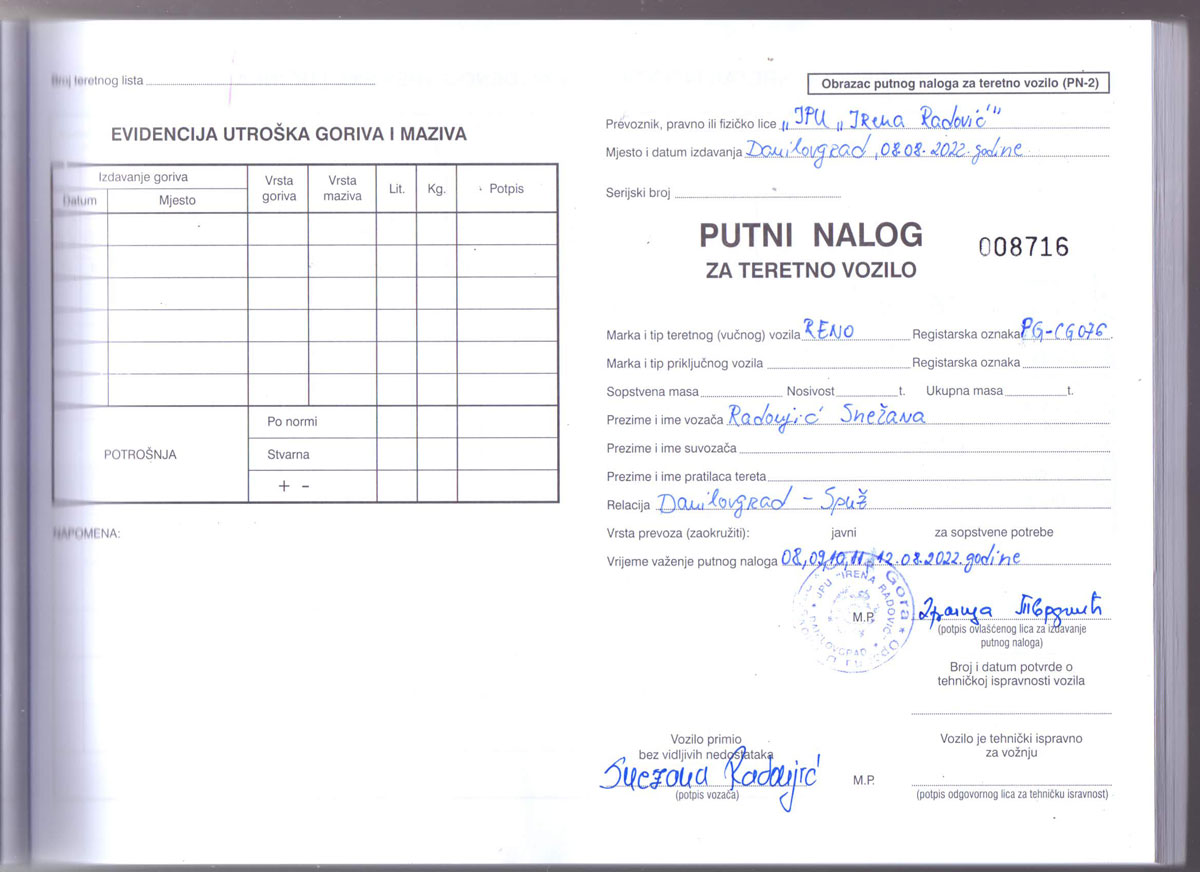 Broj teretnog lista
EVIDENCIJA UTROŠKA GORIVA I MAZIVA
Izdavanje goriva
Datum
Mjesto
Vrsta goriva
Vrsta maziva
Lit.
Kg.
Potpis
POTROŠNJA
Po normi
Stvarna
+ -
NAPOMENA:
Obrazac putnog naloga za teretno vozilo (PN-2)
Prevoznik, pravno ili fizičko lice „JPU „Irena Radović"
Mjesto i datum izdavanja Danilovgrad, 08.08.2022. godine
Serijski broj
PUTNI NALOG
008716
ZA TERETNO VOZILO
Marka i tip teretnog (vučnog) vozila RENO Registarska oznaka PG-CG076
Marka i tip priključnog vozila Registarska oznaka
Sopstvena masa Nosivost t. Ukupna masa t.
Prezime i ime vozača Radovjić Snežana
Prezime i ime suvozača
Prezime i ime pratilaca tereta
Relacija Danilovgrad - Spuž
Vrsta prevoza (zaokružiti): javni za sopstvene potrebe
Vrijeme važenje putnog naloga 08,09,10,11,12.08.2022. godine
Gora * Opš
JPU "IRENA RADOVIĆ"
DANILOVGRAD
M.P.
(potpis ovlašćenog lica za izdavanje
putnog naloga)
Broj i datum potvrde o
tehničkoj ispravnosti vozila
Vozilo primio
bez vidljivih nedostataka
Snezana Radovjić
(potpis vozača)
M.P.
Vozilo je tehnički ispravno
za vožnju
(potpis odgovornog lica za tehničku isravnost)